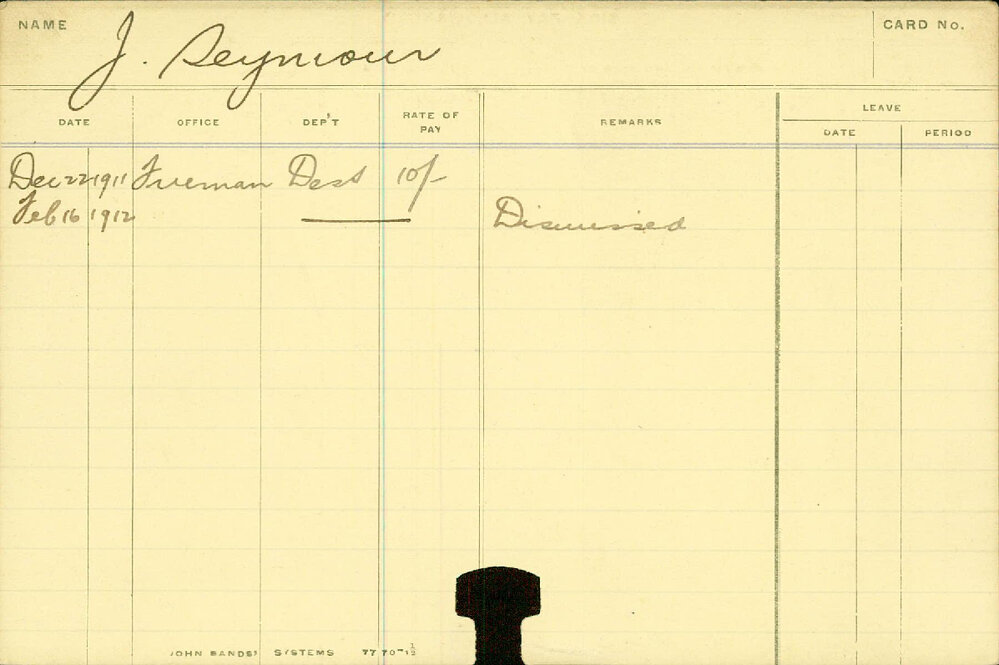 NAME
J. Seymour
CARD No.
DATE OFFICE DEP'T RATE OF PAY REMARKS LEAVE
DATE PERIOD
Dec 22 1911 Fireman Dest 10/-
Feb 16 1912 Dismissed
JOHN SANDS' SYSTEMS 77 70-½